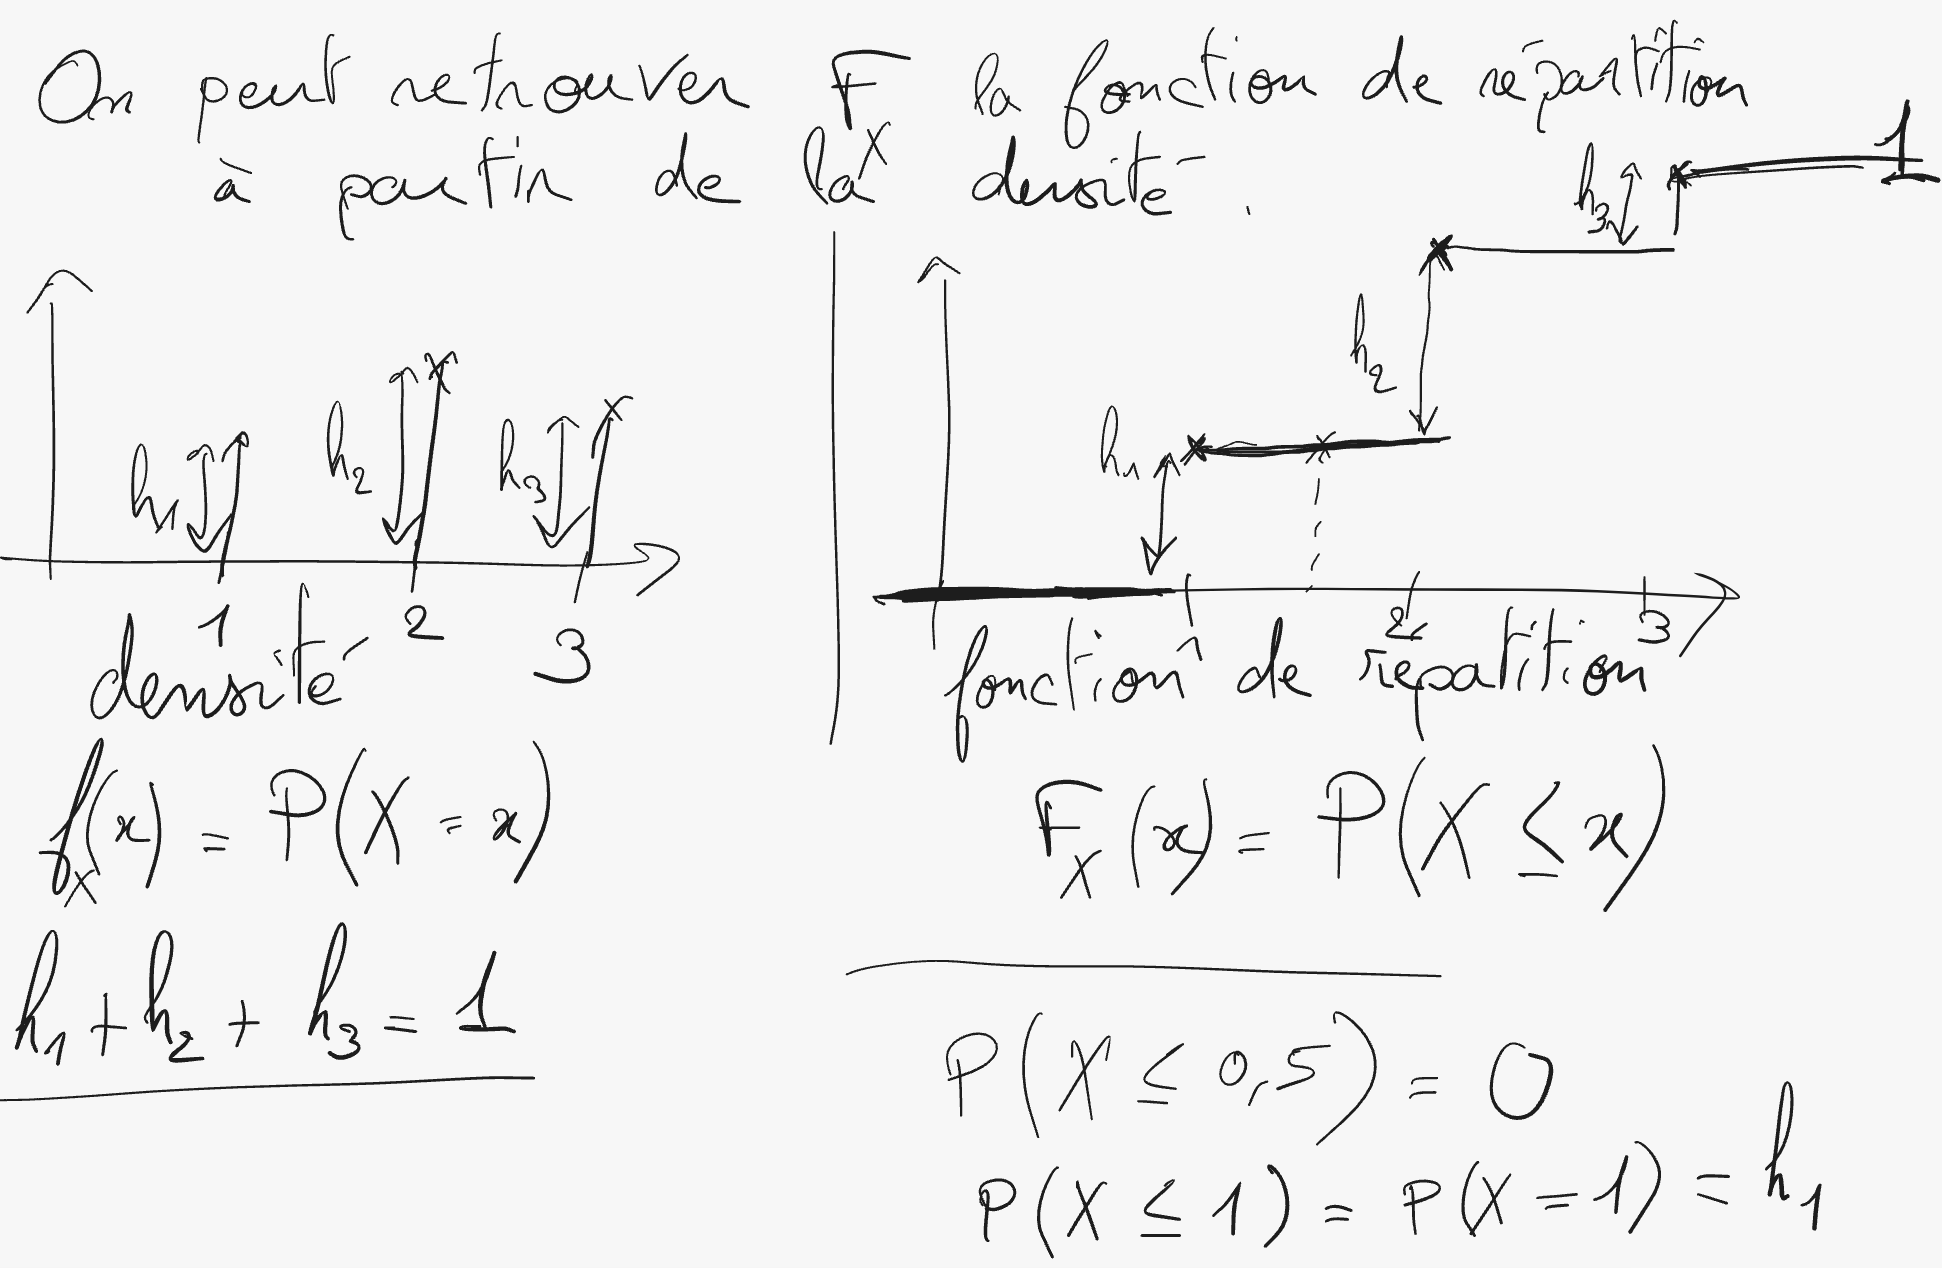 On peut retrouver F_X la fonction de répartition
à partir de la densité.
h1 h2 h3
1 2 3
densité
f_X(x) = P(X = x)
h1 + h2 + h3 = 1
h1 h2 h3 1
1 2 3
fonction de repatition
F_X(x) = P(X ≤ x)
P(X ≤ 0,5) = 0
P(X ≤ 1) = P(X = 1) = h1